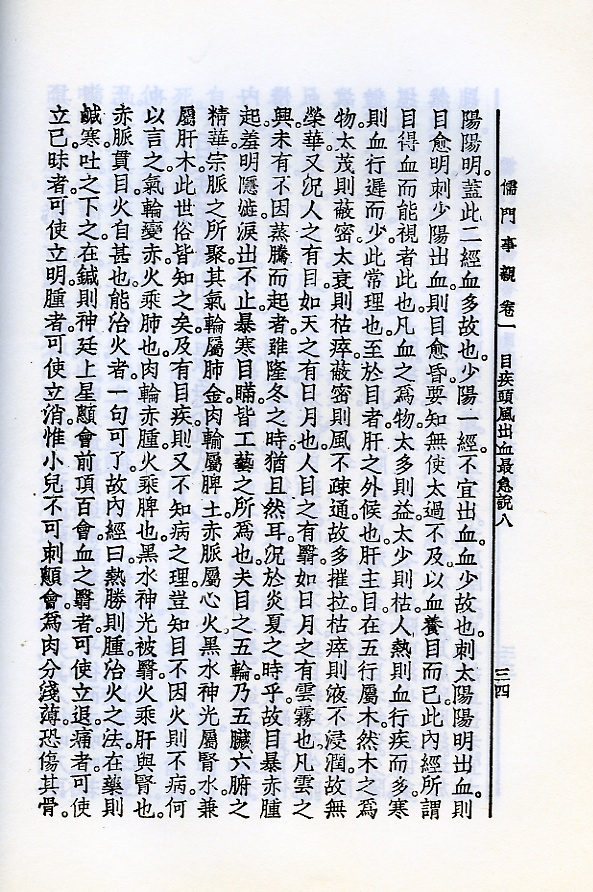 儒門事親　卷一　目疾頭風出血最急說八　三四
陽陽明。蓋此二經血多故也。少陽一經。不宜出血。血少故也。刺太陽陽明出血。則
目愈明。刺少陽出血。則目愈昏。要知無使太過不及。以血養目而已。此內經所謂
目得血而能視者此也。凡血之爲物。太多則益。太少則枯。人熱則血行疾而多。寒
則血行遲而少。此常理也。至於目者。肝之外候也。肝主目。在五行屬木。然木之爲
物。太茂則蔽密。太衰則枯瘁。蔽密則風不疎通。故多摧拉。枯瘁則液不浸潤。故無
榮華。又況人之有目。如天之有日月也。人目之有翳。如日月之有雲霧也。凡雲之
興。未有不因蒸騰而起者。雖隆冬之時猶且然耳。況於炎夏之時乎。故目暴赤腫
起。羞明隱澁。淚出不止。暴寒目瞞。皆工藝之所爲也。夫目之五輪。乃五臟六腑之
精華。宗脈之所聚。其氣輪屬肺金。肉輪屬脾土。赤脈屬心火。黑水神光屬腎水。兼
屬肝木。此世俗皆知之矣。及有目疾。則又不知病之理。豈知目不因火則不病。何
以言之。氣輪變赤。火乘肺也。肉輪赤腫。火乘脾也。黑水神光被翳。火乘肝與腎也。
赤脈貫目。火自甚也。能治火者。一句可了。故內經曰。熱勝則腫。治火之法。在藥則
鹹寒吐之下之。在鍼則神廷上星顖會前頂百會。血之翳者。可使立退。痛者。可使
立已。昧者。可使立明。腫者。可使立消。惟小兒不可刺顖會。爲肉分淺薄。恐傷其骨。